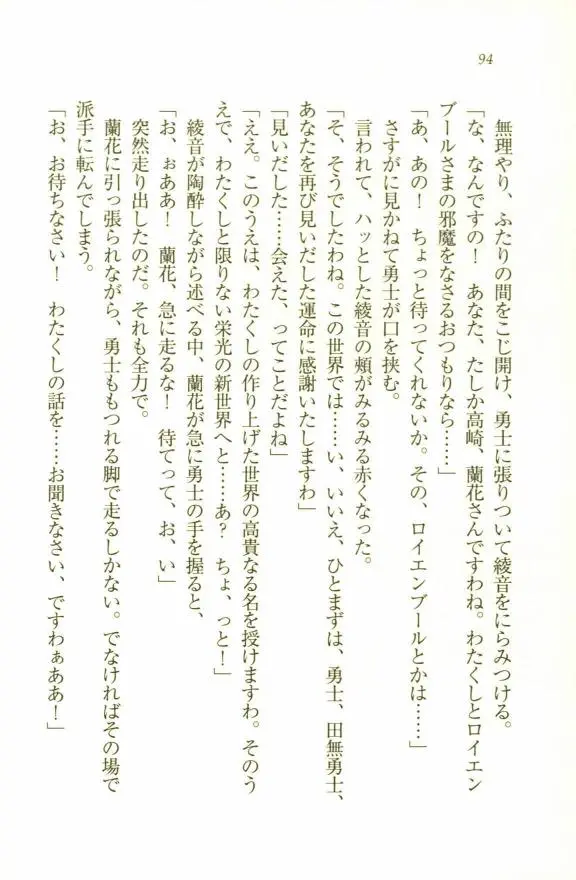 94
無理やり、ふたりの間をこじ開け、勇士に張りついて綾音をにらみつける。
「な、なんですの！　あなた、たしか高崎、蘭花さんですわね。わたくしとロイエン
ブールさまの邪魔をなさるおつもりなら……」
「あ、あの！　ちょっと待ってくれないか。その、ロイエンブールとかは……」
さすがに見かねて勇士が口を挟む。
言われて、ハッとした綾音の頬がみるみる赤くなった。
「そ、そうでしたわね。この世界では……い、いいえ、ひとまずは、勇士、田無勇士、
あなたを再び見いだした運命に感謝いたしますわ」
「見いだした……会えた、ってことだよね」
「ええ。このうえは、わたくしの作り上げた世界の高貴なる名を授けますわ。そのう
えで、わたくしと限りない栄光の新世界へと……あ？　ちょ、っと！」
綾音が陶酔しながら述べる中、蘭花が急に勇士の手を握ると、
「お、ぉああ！　蘭花、急に走るな！　待てって、お、い」
突然走り出したのだ。それも全力で。
蘭花に引っ張られながら、勇士ももつれる脚で走るしかない。でなければその場で
派手に転んでしまう。
「お、お待ちなさい！　わたくしの話を……お聞きなさい、ですわぁああ！」